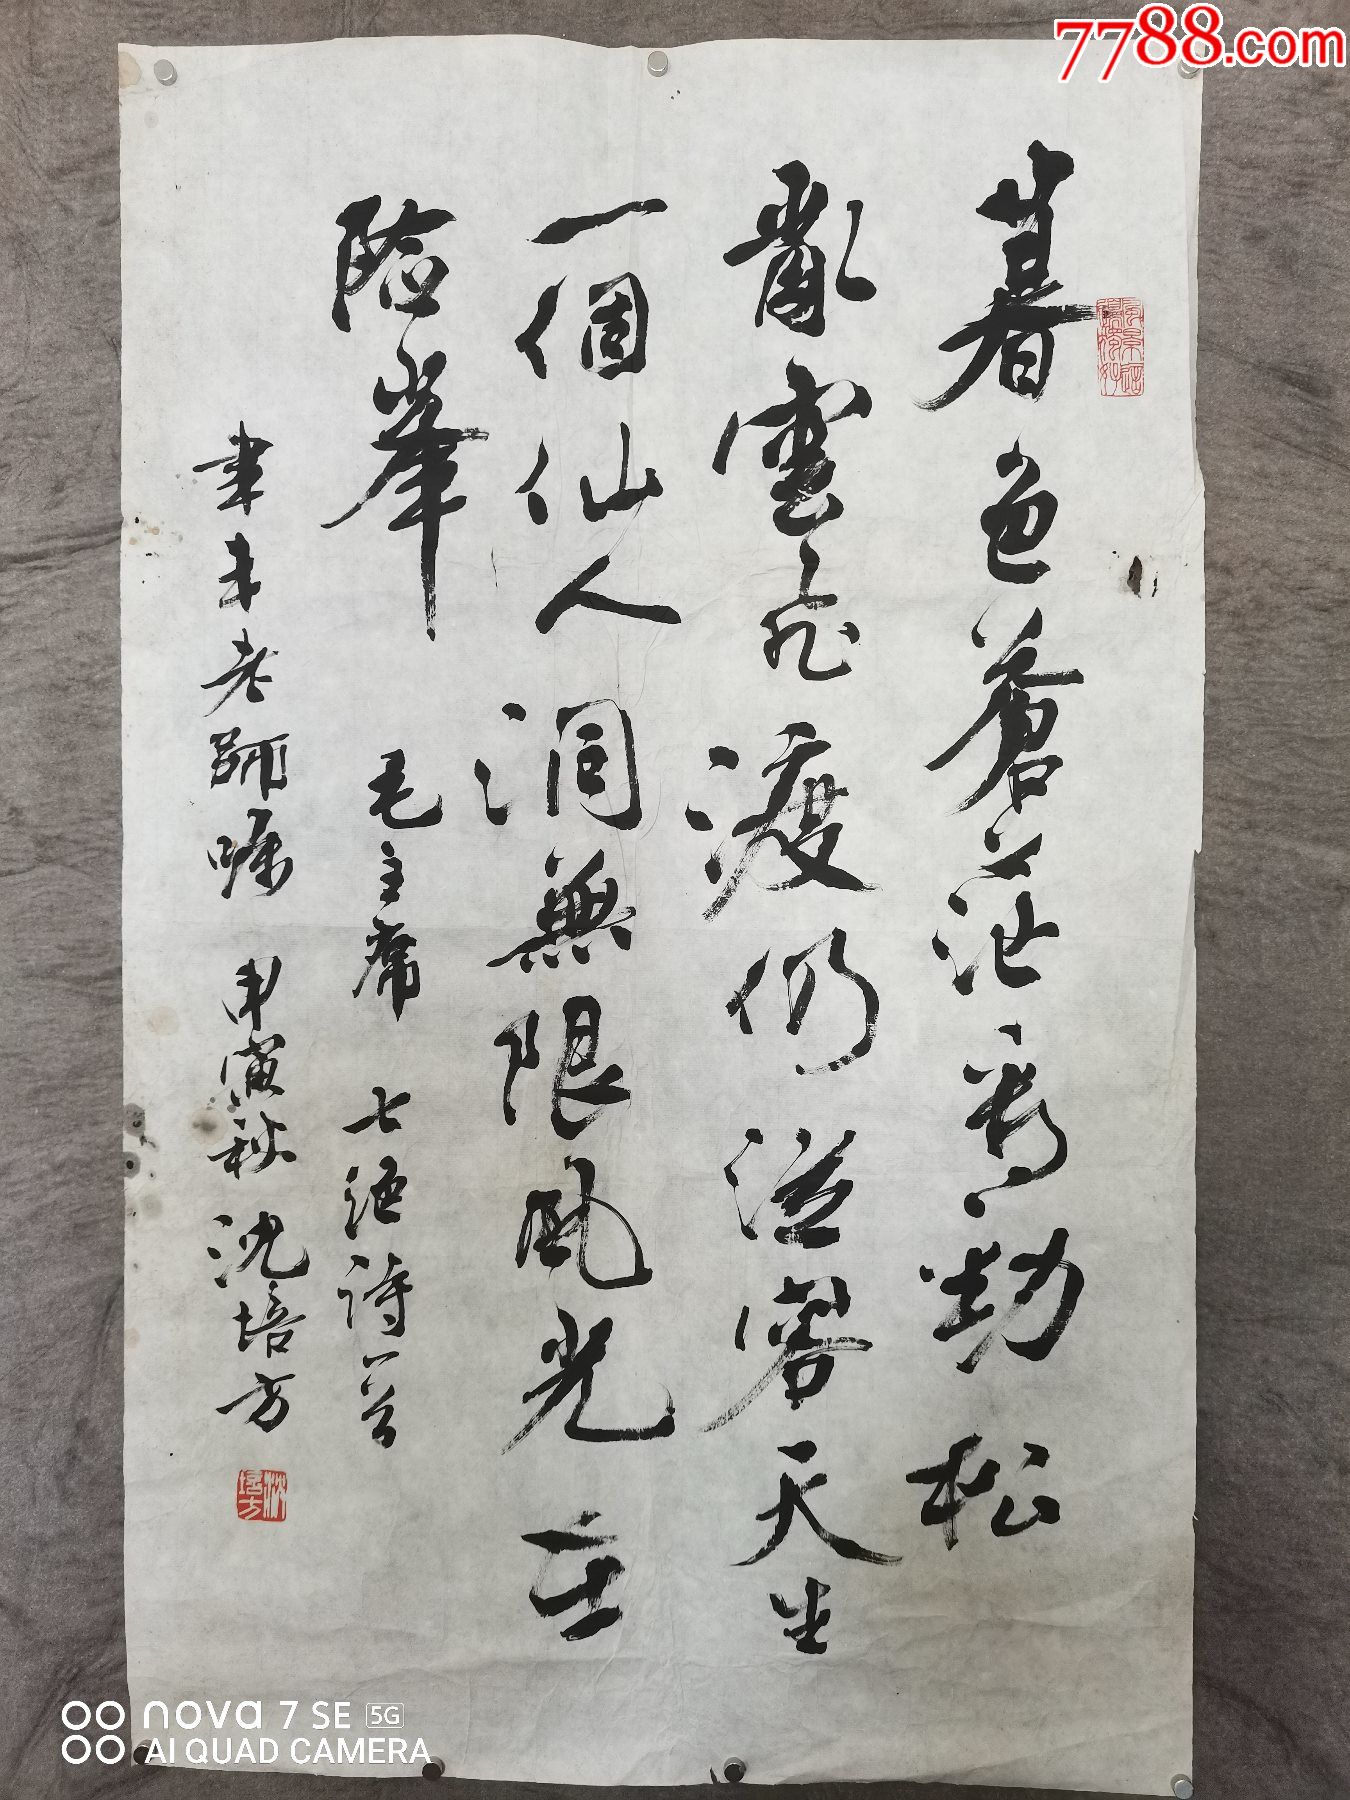 7788.com
暮色蒼茫看勁松
亂雲飛渡仍從容天生
一個仙人洞無限風光在
險峯 毛主席 七絕詩一首
老師囑 甲寅秋 沈培方
風景這邊獨好
沈培方
nova 7 SE 5G
AI QUAD CAMERA